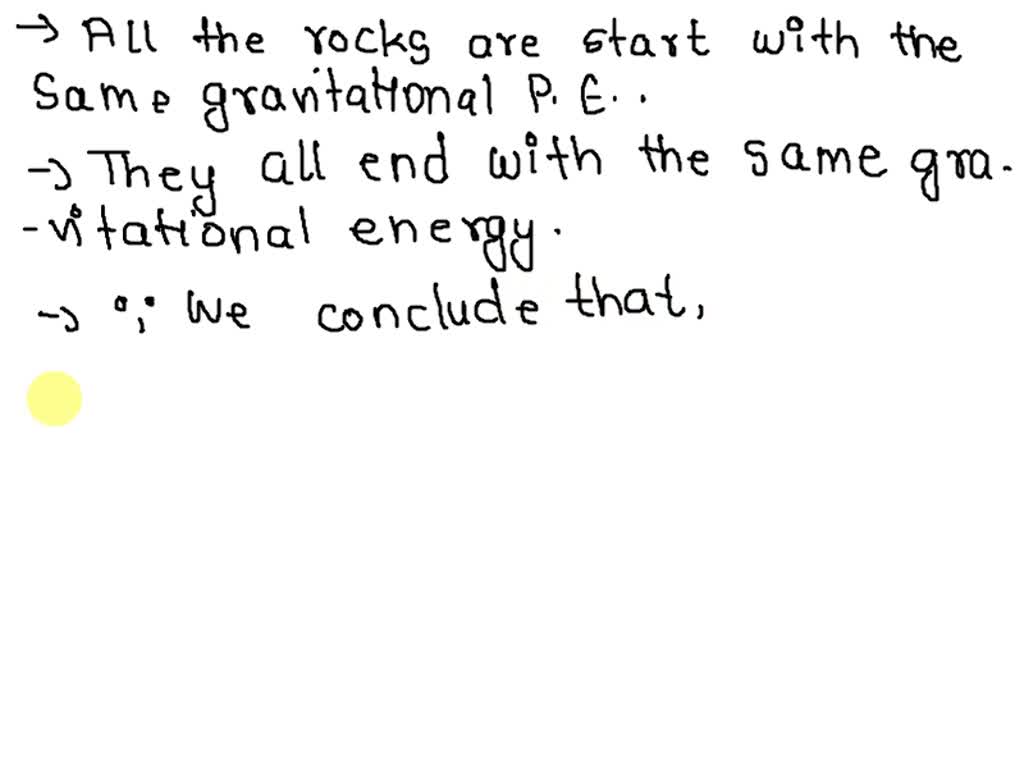 → All the rocks are start with the
Same gravitational P. E..
→ They all end with the same gra-
-vitational energy.
→ ∵ We conclude that,